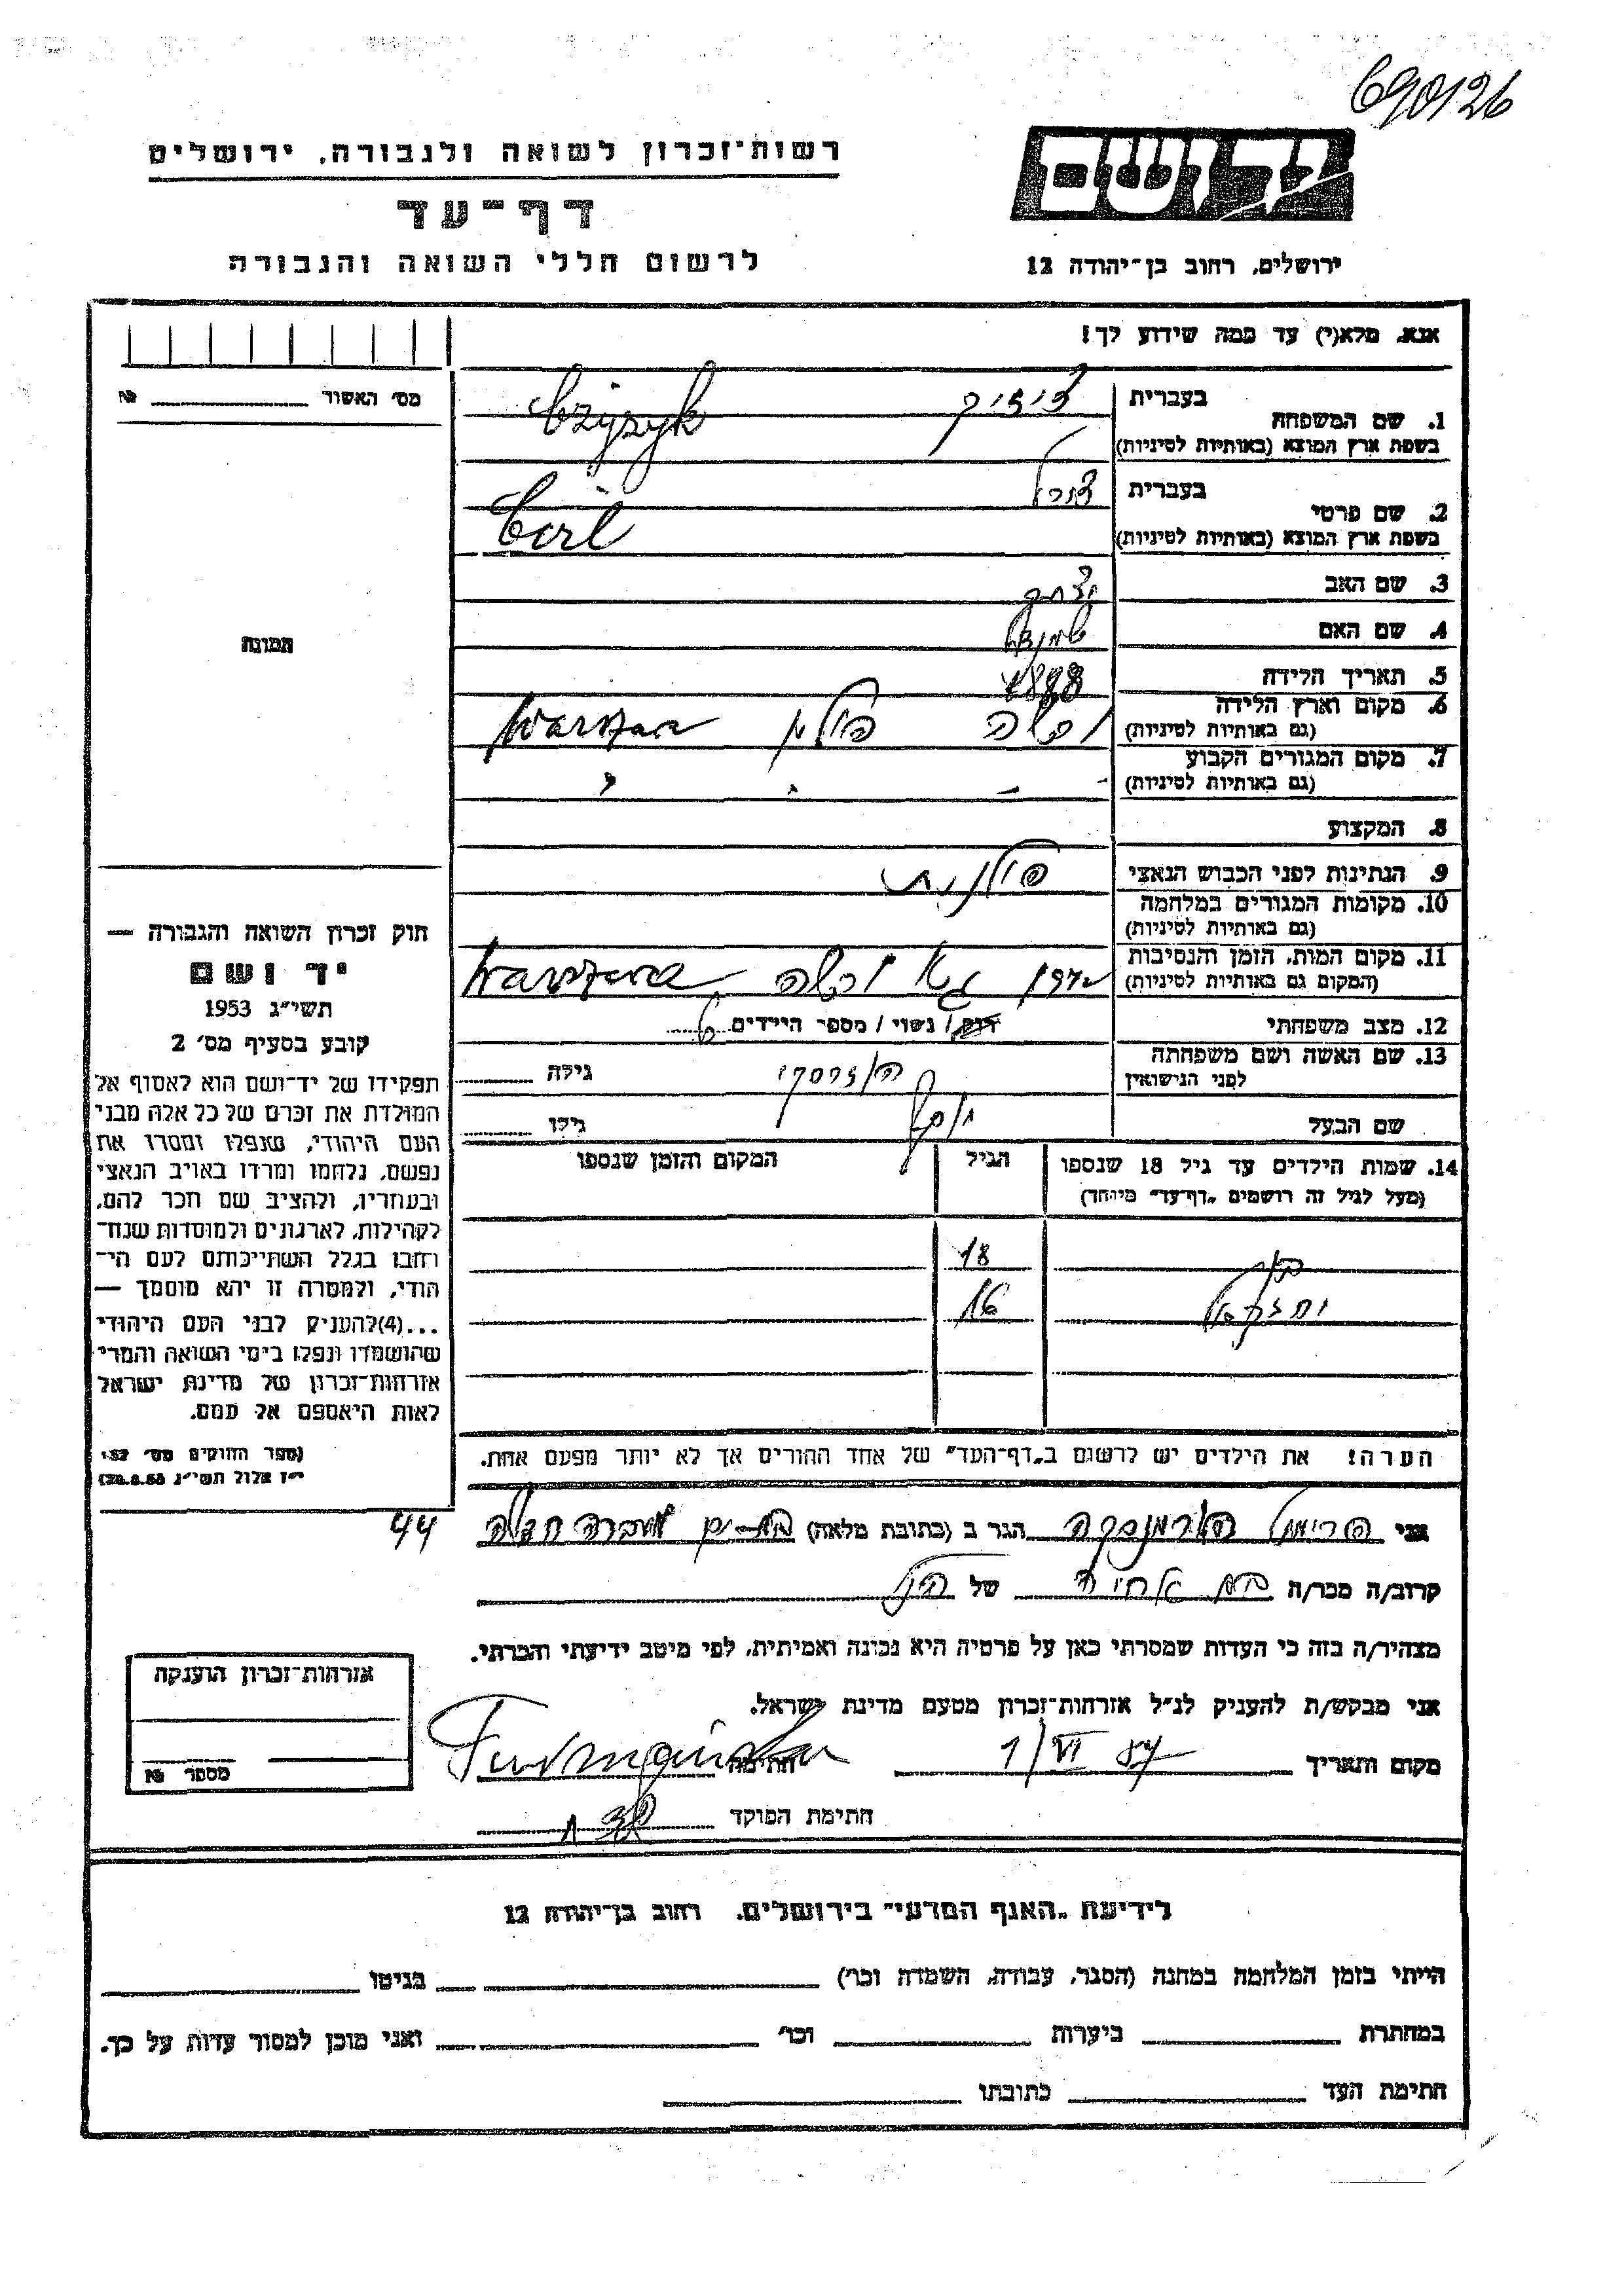 690126
רשות־זכרון לשואה ולגבורה, ירושלים
דף־עד
לרשום חללי השואה והגבורה
יד ושם
ירושלים, רחוב בן־יהודה 12
אנא, מלא(י) עד כמה שידוע לך!
מס׳ האשור № 
1. שם המשפחה
בעברית
בשפת ארץ המוצא (באותיות לטיניות)
2. שם פרטי
בעברית
בשפת ארץ המוצא (באותיות לטיניות)
3. שם האב יצחק
4. שם האם
5. תאריך הלידה 1898
6. מקום וארץ הלידה ורשה פולין
(גם באותיות לטיניות)
7. מקום המגורים הקבוע
(גם באותיות לטיניות)
8. המקצוע
9. הנתינות לפני הכבוש הנאצי פולנית
10. מקומות המגורים במלחמה
(גם באותיות לטיניות)
11. מקום המות, הזמן והנסיבות
(המקום גם באותיות לטיניות)
12. מצב משפחתי רווק / נשוי / מספר הילדים
13. שם האשה ושם משפחתה
לפני הנישואין
גילה
שם הבעל יוסף גילו
14. שמות הילדים עד גיל 18 שנספו
(מעל לגיל זה רושמים „דף־עד״ מיוחד)
הגיל
המקום והזמן שנספו
18
יחזקאל 16
הערה! את הילדים יש לרשום ב„דף־העד״ של אחד ההורים אך לא יותר מפעם אחת.
תמונה
חוק זכרון השואה והגבורה —
יד ושם
תשי״ג 1953
קובע בסעיף מס׳ 2
תפקידו של יד־ושם הוא לאסוף אל
המולדת את זכרם של כל אלה מבני
העם היהודי, שנפלו ומסרו את
נפשם, נלחמו ומרדו באויב הנאצי
ובעוזריו, ולהציב שם וזכר להם,
לקהילות, לארגונים ולמוסדות שנח־
רבו בגלל השתייכותם לעם הי־
הודי, ולמטרה זו יהא מוסמך —
...(4)להעניק לבני העם היהודי
שהושמדו ונפלו בימי השואה והמרי
אזרחות־זכרון של מדינת ישראל
לאות היאספם אל עמם.
(ספר החוקים מס׳ 132
י״ז אלול תשי״ג 28.8.53)
אני הגר ב (כתובת מלאה) בת-ים 44
קרוב/ה מכר/ה בת אחיה של
מצהיר/ה בזה כי העדות שמסרתי כאן על פרטיה היא נכונה ואמיתית, לפי מיטב ידיעתי והכרתי.
אני מבקש/ת להעניק לנ״ל אזרחות־זכרון מטעם מדינת ישראל.
מקום ותאריך 1/VI חתימה
חתימת הפוקד
אזרחות־זכרון הוענקה
מספר №
לידיעת „האגף המדעי״ בירושלים, רחוב בן־יהודה 12
הייתי בזמן המלחמה במחנה (הסגר, עבודה, השמדה וכו׳) בגיטו
במחתרת ביערות וכו׳ ואני מוכן למסור עדות על כך.
חתימת העד כתובתו